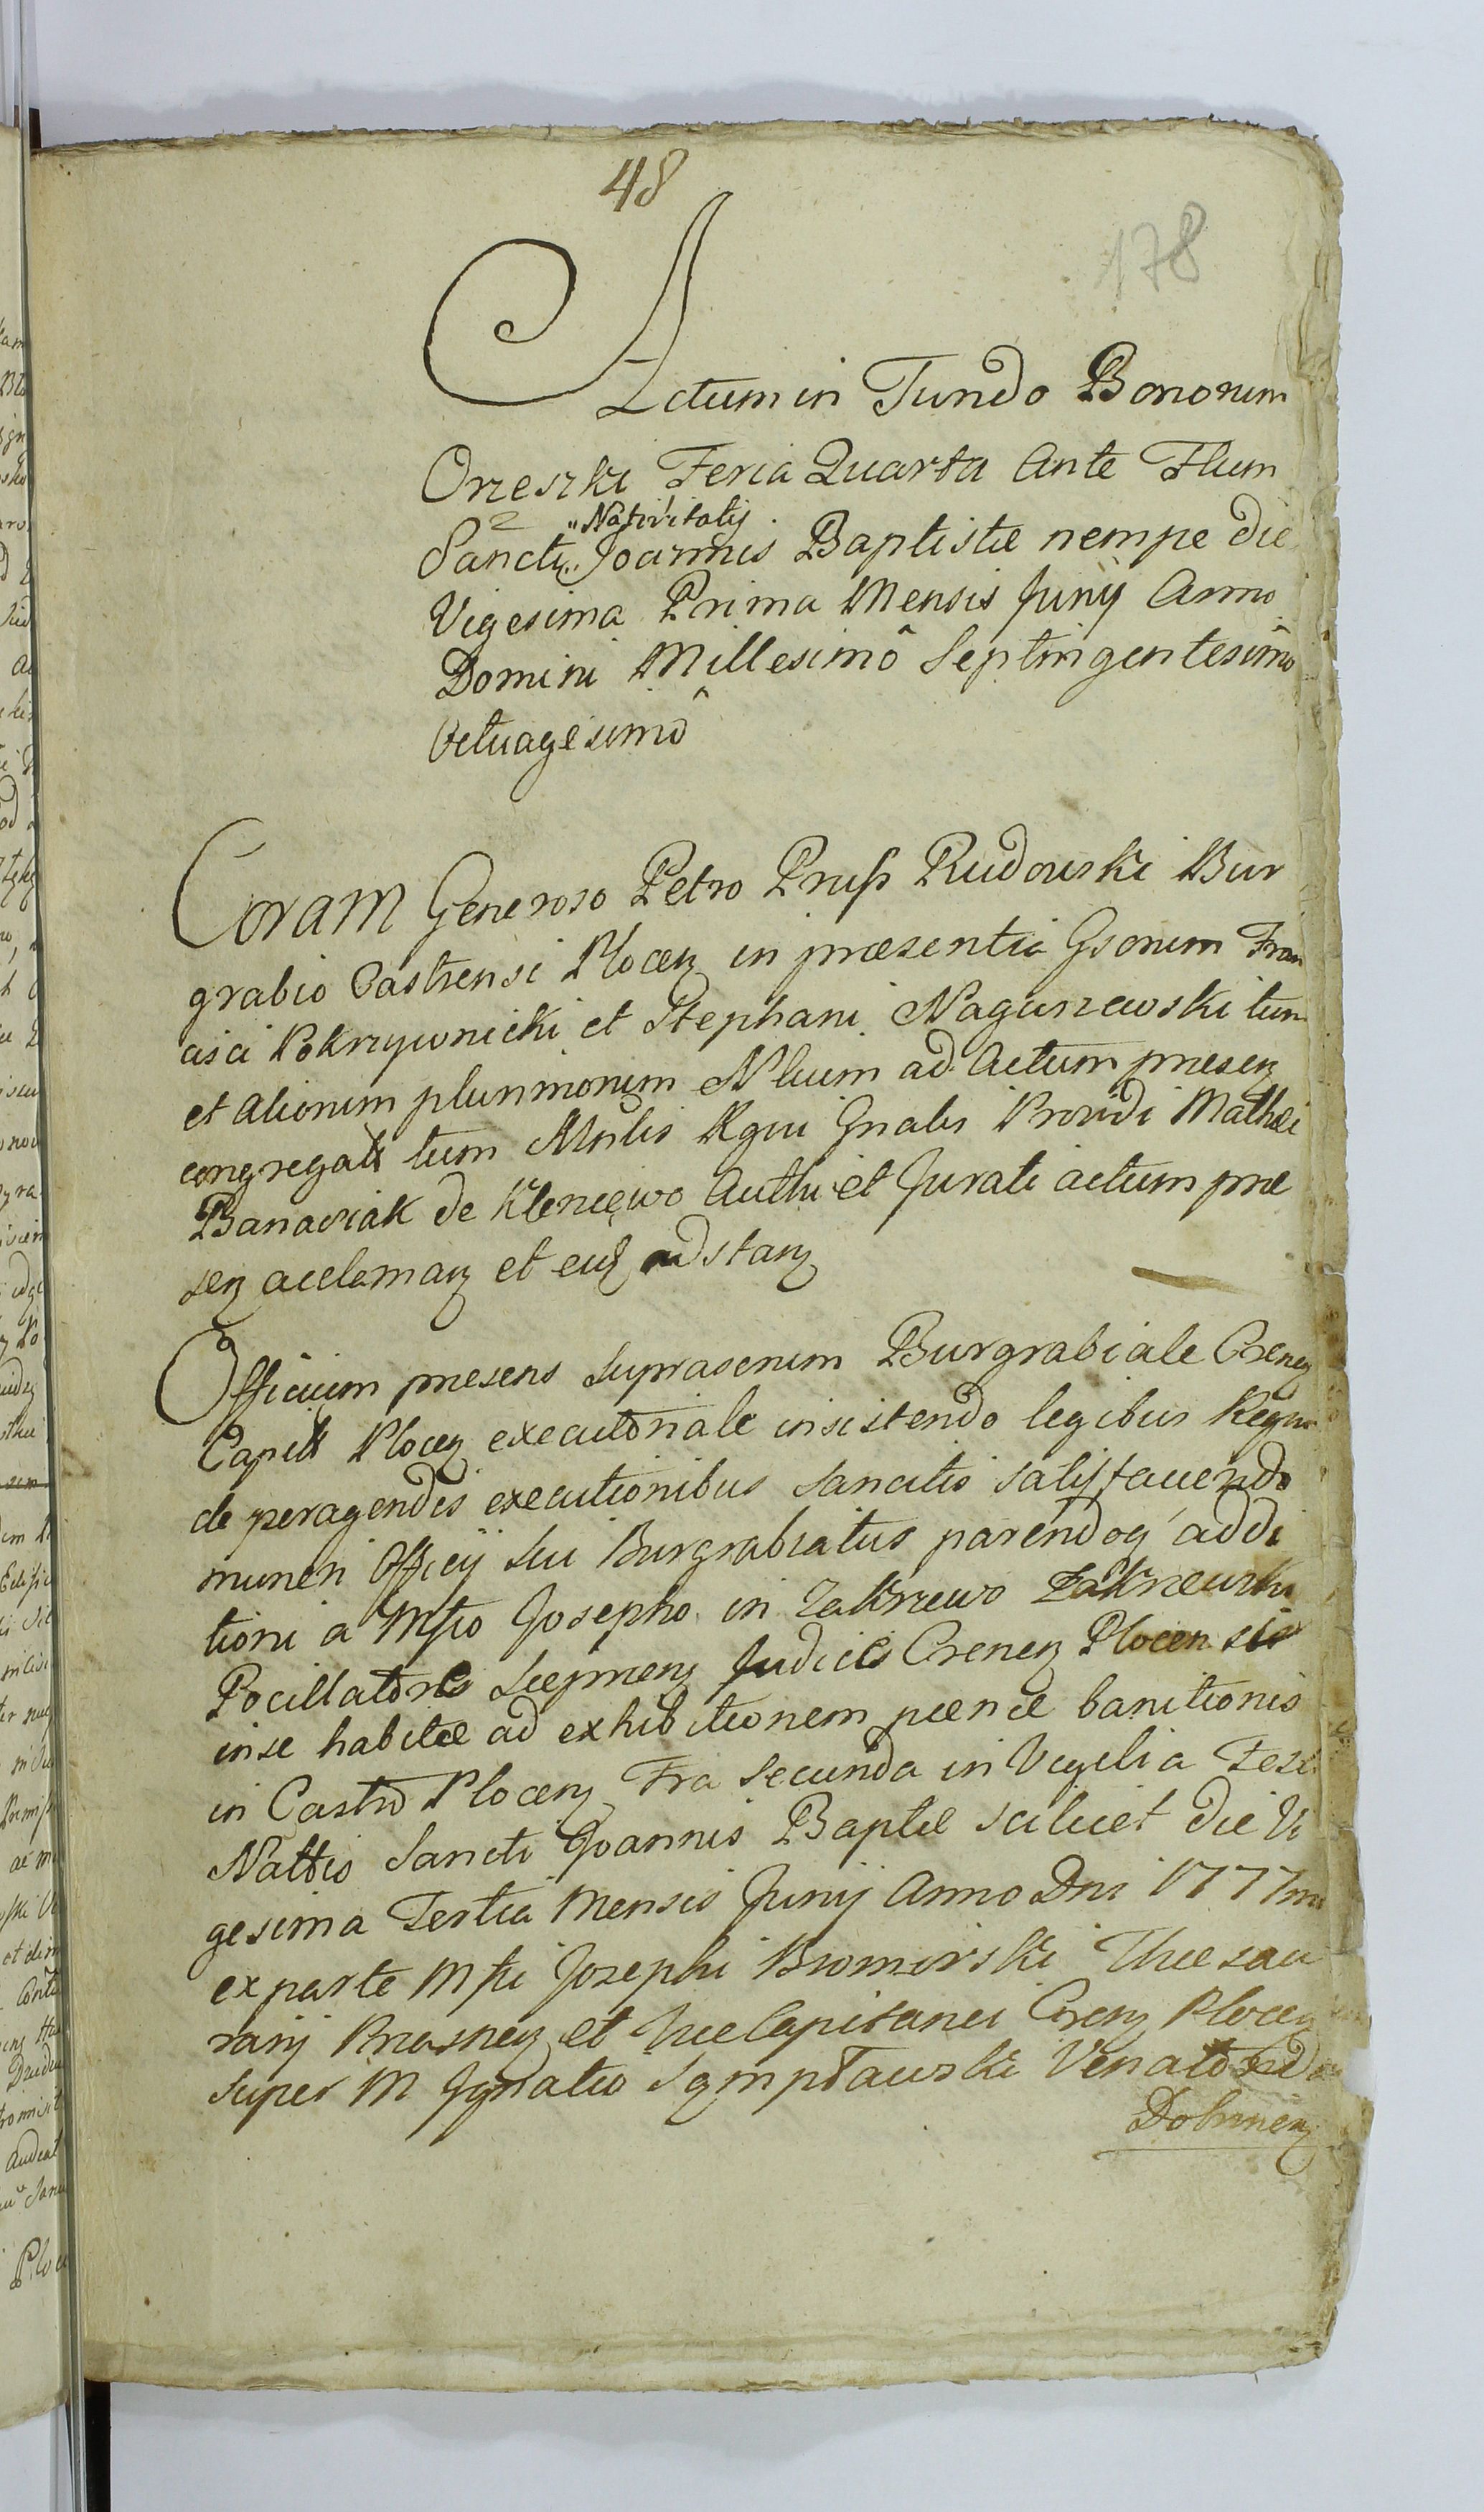 48
178
Actum in Fundo Bonorum
Orzeszki Feria Quarta Ante Ftum
Sancti Joannis Baptistæ nempe die
"Nativitatis
Vigesima Prima Mensis Junÿ Anno
Domini Millesimô Septingentesimô
Octuagesimô
Coram Generoso Petro Pruss Rudowski Bur
grabio Castrensi Plocen in præsentia Gsorum Fran
cisci Pokrzywnicki et Stephani Naguszewski tum
et aliorum plurimorum Nlium ad Actum præsen
congregat tum Mnlis Rgni Gnalis Providi Mathæi
Banasiak de Klenięwo Authi et Jurati actum præ
sen acclaman et eid adstan
Officium præsens suprascrum Burgrabiale Crenen
Capit Plocen executoriale insistendo legibus Regni
de peragendis executionibus sancitis satisfaciendo
muneri Officÿ sui Burgrabiatus parendoq addi
tioni a Mfco Josepho in Zakrzewo Zakrzewski
Pocillatore Judice Crenen Plocensis
in se habitæ ad exhibitionem pœnæ banitionis
in Castro Plocen Fra Secunda in Vigilia Festi
Nattis Sancti Joannis Baptæ scilicet die Vi
gesima Tertia Mensis Junÿ Anno Dni 1777mo
ex parte Mfci Josephi Bromirski Thesau
rarÿ Prasnen et Vice Capitanei Cren Plocen
super M Ignatio Venatore
Dobrinen